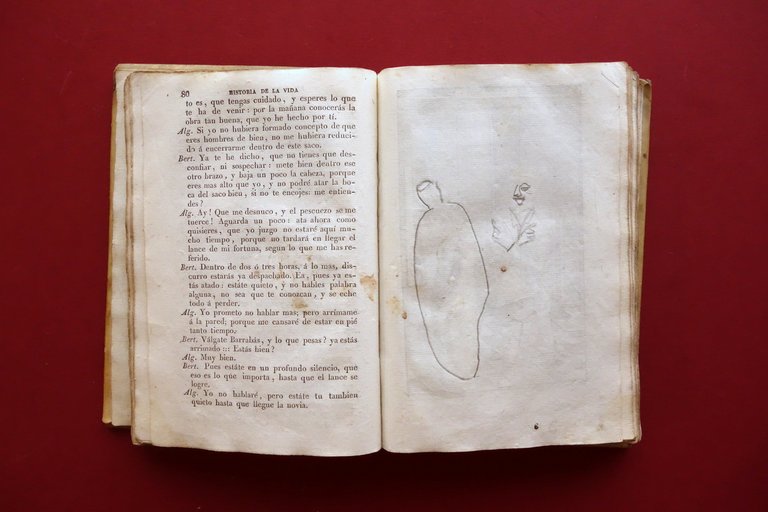 80 HISTORIA DE LA VIDA
to es, que tengas cuidado, y esperes lo que
te ha de venir: por la mañana conocerás la
obra tan buena, que yo he hecho por tí.
Alg. Si yo no hubiera formado concepto de que
eres hombres de bien, no me hubiera reduci-
do á encerrarme dentro de este saco.
Bert. Ya te he dicho, que no tienes que des-
confiar, ni sospechar: mete bien dentro ese
otro brazo, y baja un poco la cabeza, porque
eres mas alto que yo, y no podré atar la bo-
ca del saco bien, si no te encojes: me entien-
des?
Alg. Ay! Que me desnuco, y el pescuezo se me
tuerce! Aguarda un poco: ata ahora como
quisieres, que yo juzgo no estaré aquí mu-
cho tiempo, porque no tardará en llegar el
lance de mi fortuna, segun lo que me has re-
ferido.
Bert. Dentro de dos ó tres horas, á lo mas, dis-
curro estarás ya despachado. Ea, pues ya es-
tás atado: estáte quieto, y no hables palabra
alguna, no sea que te conozcan, y se eche
todo á perder.
Alg. Yo prometo no hablar mas; pero arrímame
á la pared; porque me cansaré de estar en pié
tanto tiempo.
Bert. Válgate Barrabás, y lo que pesas? ya estás
arrimado ::: Estás bien?
Alg. Muy bien.
Bert. Pues estáte en un profundo silencio, que
eso es lo que importa, hasta que el lance se
logre.
Alg. Yo no hablaré, pero estáte tu tambien
quieto hasta que llegue la novia.